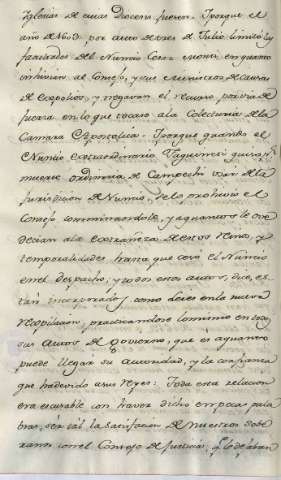 Iglesias de cuias Diocesis fueron. Y porque el
año de 1603 por auto de tres de Julio limitó las
facultades del Nuncio Cesar Monti en quanto
inhivian al Consejo, y sus Ministros de causas
de expolios, y negavan el recurso por via de
fuerza en lo que tocaso a la Colecturia de la
Camara Apostolica. Y porque quando el
Nuncio extraordinario quiso pr
muerte ordinaria de Campechi usar de la
Jurisdicion de Nuncio, se lo prohivio el
Consejo comminandole, y aguantosele
decian a la extrañeza de estos Reinos, y
temporalidades hasta que cesó el Nuncio
en el despacho; y todos estos autos, que es
tan incorporados como leies en la nueva
recopilacion, practicandose lo mismo en los
sus Autos de govierno, que es aquanto
puede llegar su autoridad, y la confianza
que ha devido a sus reyes: Toda esta relacion
era escusable con haver dicho en pocas pala
bras, ser tal la satisfacion de nuestros sobe
ranos con el Consejo de Justicia,